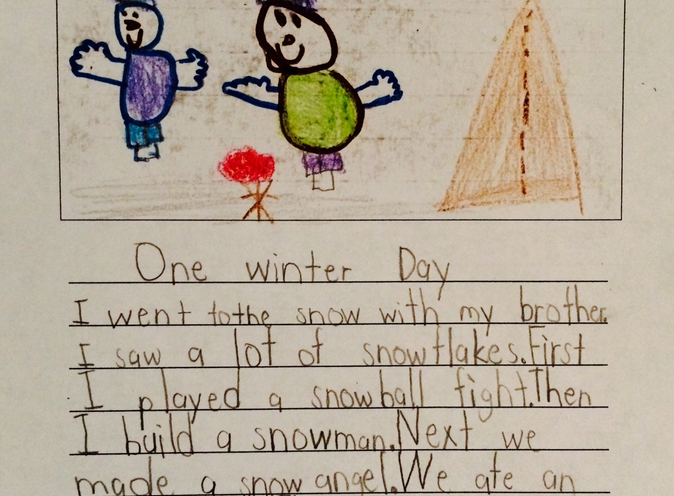 One winter Day
I went to the snow with my brother.
I saw a lot of snowflakes. First
I played a snowball fight. Then
I build a snowman. Next we
made a snow angel. We ate an